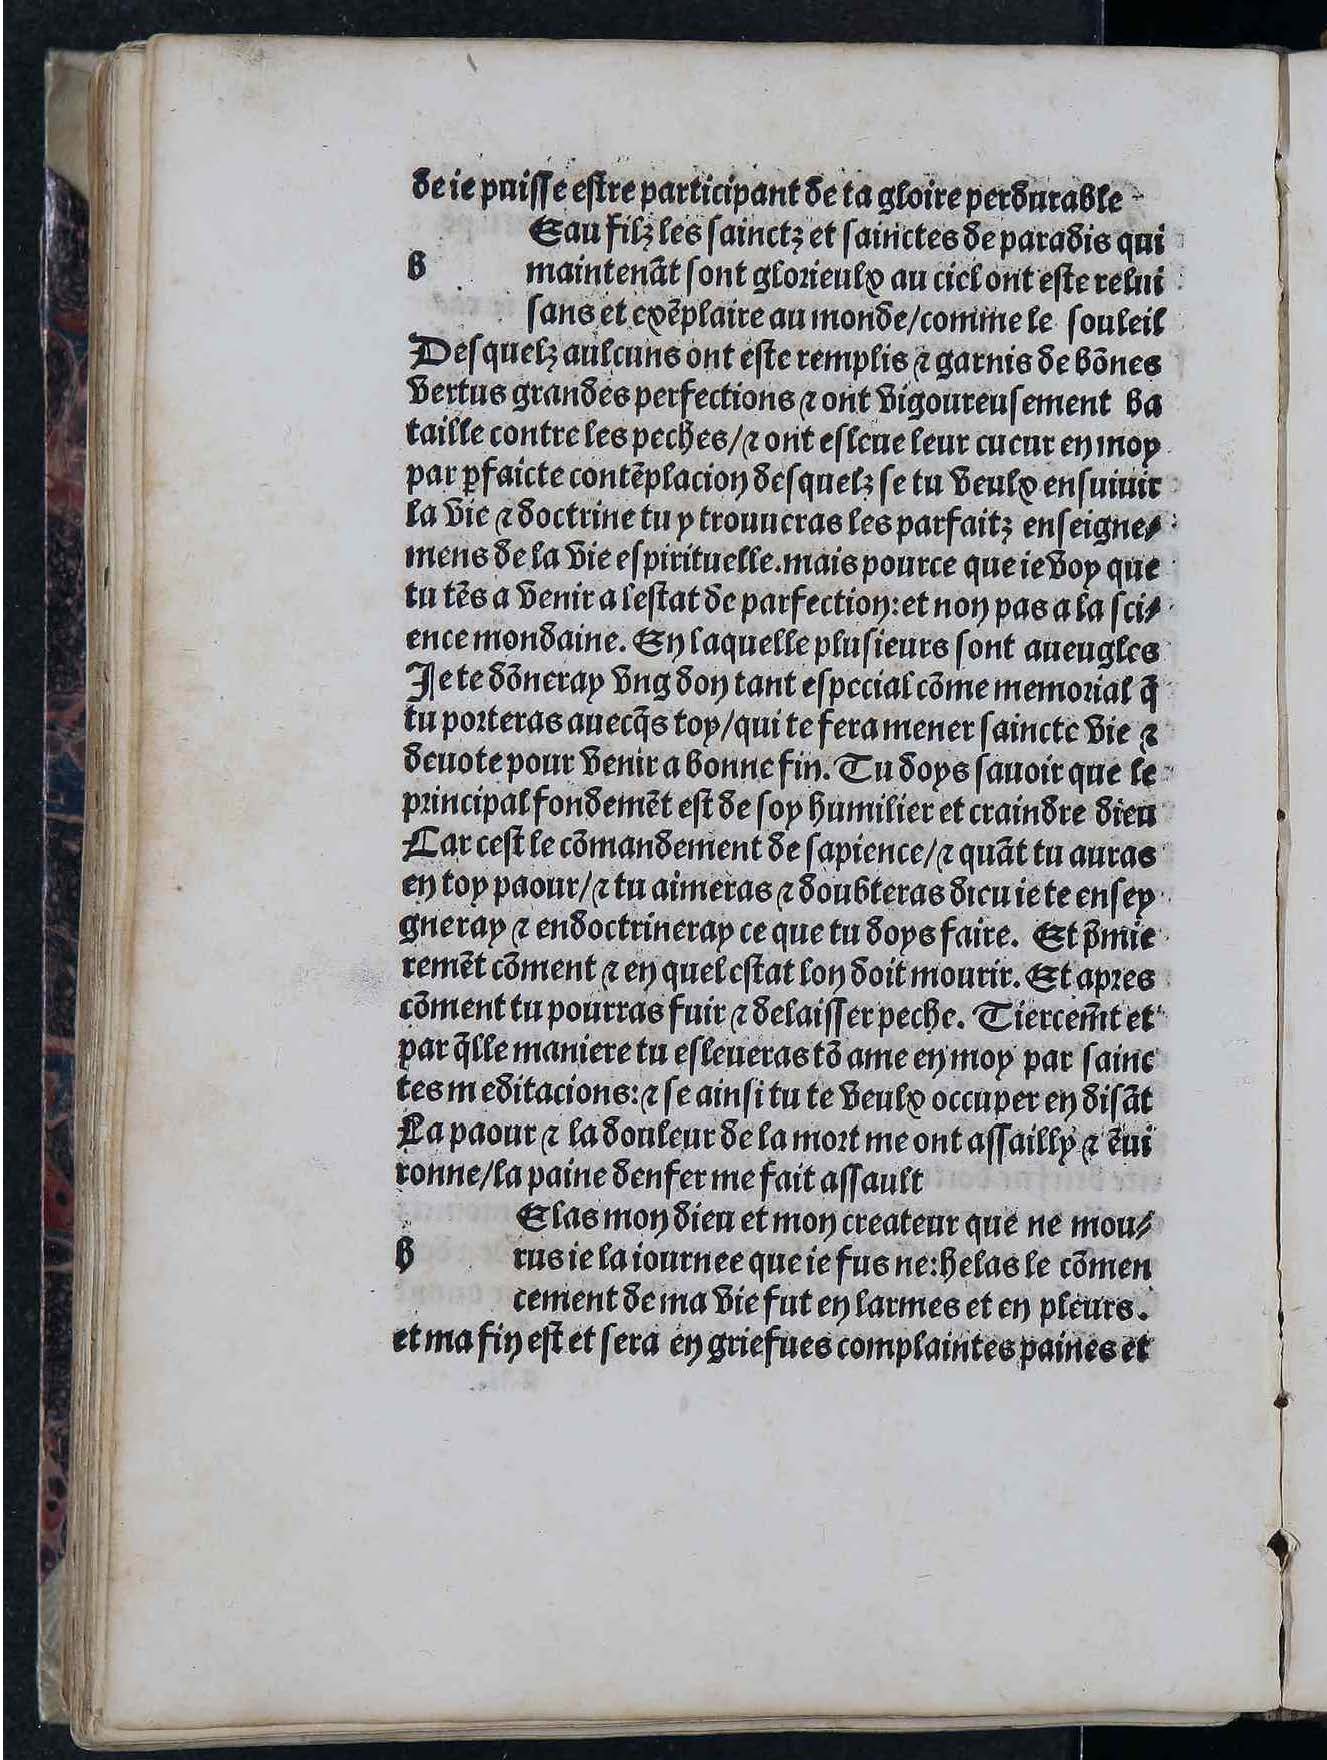 de ie puisse estre participant de ta gloire perdurable
Eau filz les sainctz et sainctes de paradis qui
b maintenāt sont glorieulx au ciel ont este relui
sans et exēplaire au monde/comme le souleil
Desquelz aulcuns ont este remplis ⁊ garnis de bōnes
vertus grandes perfections ⁊ ont vigoureusement ba
taille contre les peches/⁊ ont esleue leur cueur en moy
par ꝑfaicte contēplacion desquelz se tu veulx ensuiuir
la vie ⁊ doctrine tu y trouueras les parfaitz enseigne⸗
mens de la vie espirituelle. mais pource que ie voy que
tu tēs a venir a lestat de parfection: et non pas a la sci⸗
ence mondaine. En laquelle plusieurs sont aueugles
Je te dōneray vng don tant especial cōme memorial q̄
tu porteras auecq̄s toy/qui te fera mener saincte vie ⁊
deuote pour venir a bonne fin. Tu doys sauoir que le
principal fondemēt est de soy humilier et craindre dieu
Car cest le cōmandement de sapience/⁊ quāt tu auras
en toy paour/⁊ tu aimeras ⁊ doubteras dieu ie te ensey
gneray ⁊ endoctrineray ce que tu doys faire. Et p̄mie
remēt cōment ⁊ en quel estat lon doit mourir. Et apres
cōment tu pourras fuir ⁊ delaisser peche. Tiercem̄t et
par q̄lle maniere tu esleueras tō ame en moy par sainc
tes meditacions: ⁊ se ainsi tu te veulx occuper en disāt
La paour ⁊ la douleur de la mort me ont assailly ⁊ ēui
ronne/la paine denfer me fait assault
Elas mon dieu et mon createur que ne mou⸗
b rus ie la iournee que ie fus ne: helas le cōmen
cement de ma vie fut en larmes et en pleurs.
et ma fin est et sera en griefues complaintes paines et